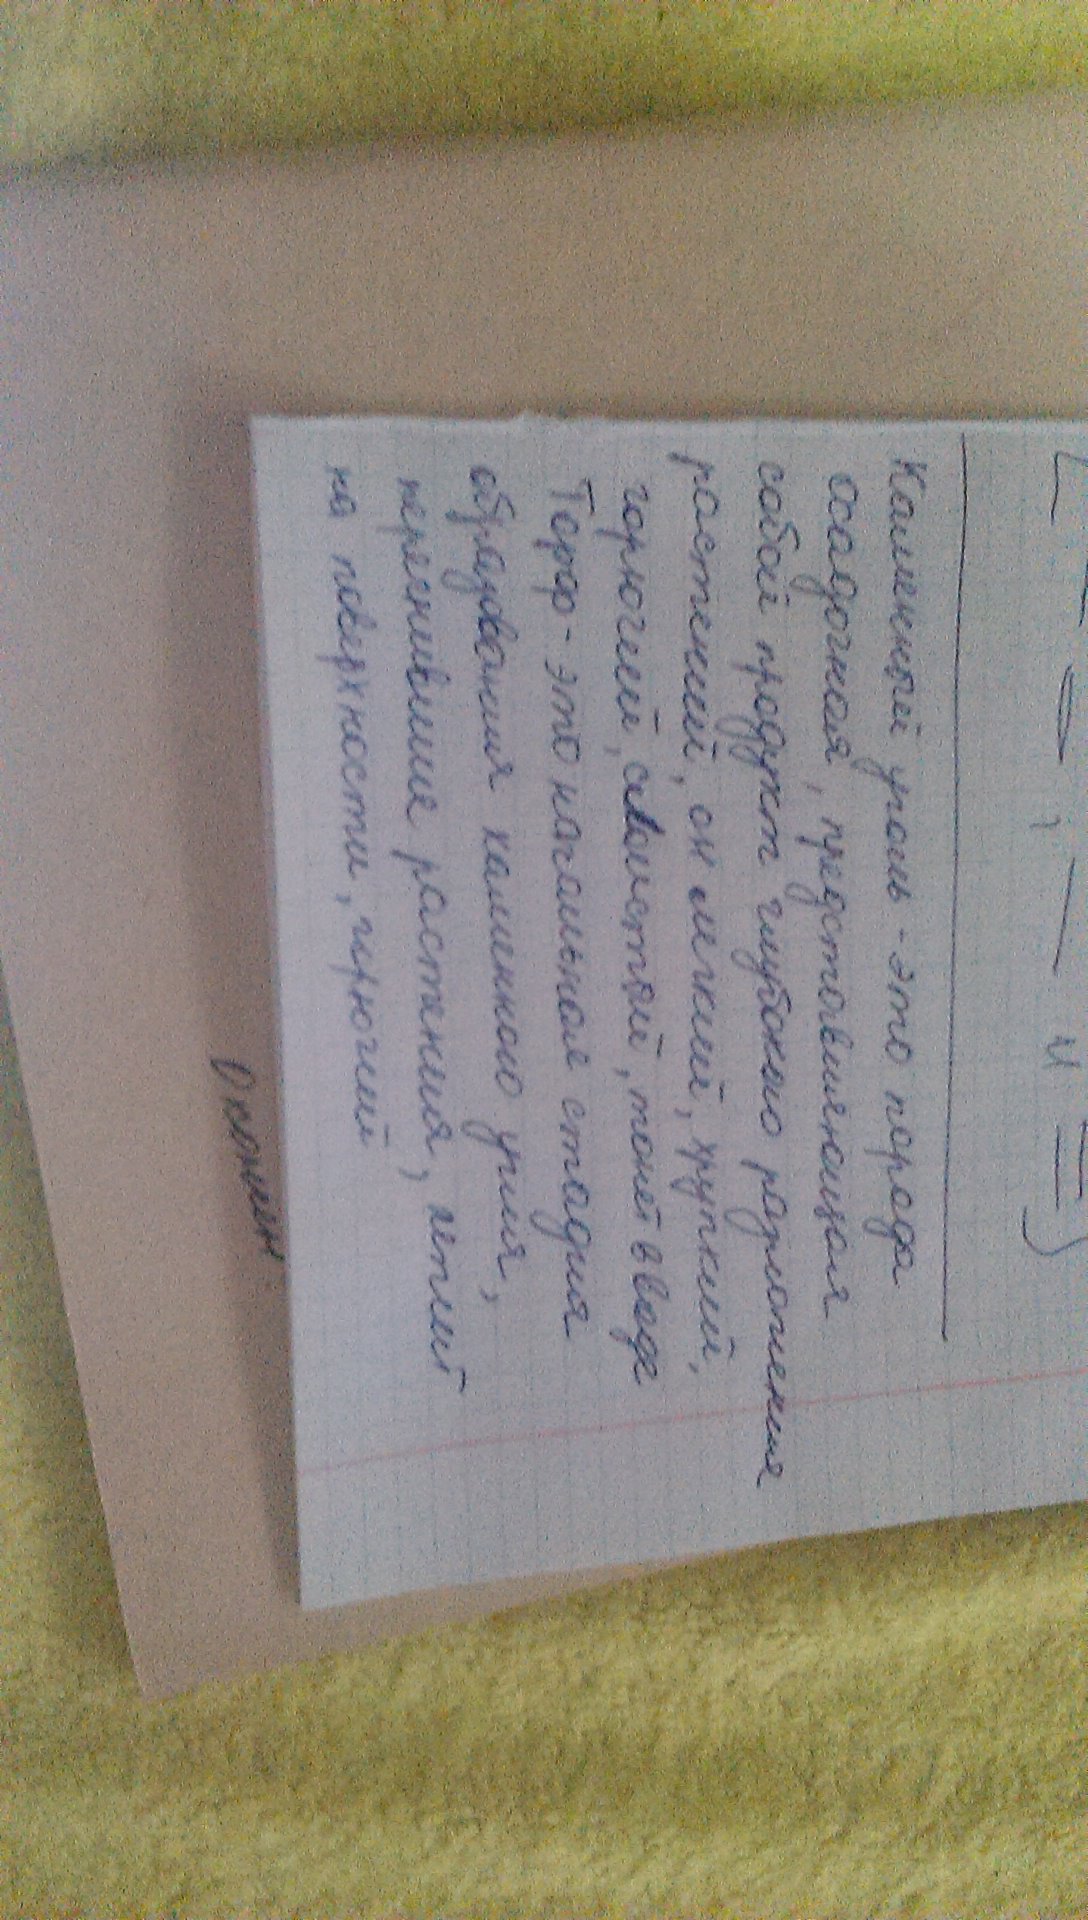 Каменный уголь - это порода
осадочная, представляющая
собой продукт глубокого разложения
растений, он мягкий, хрупкий,
горючий, слоистый, тонет в воде
Торф - это начальная стадия
образования каменного угля,
перегнившие растения, летит
на поверхности, горючий